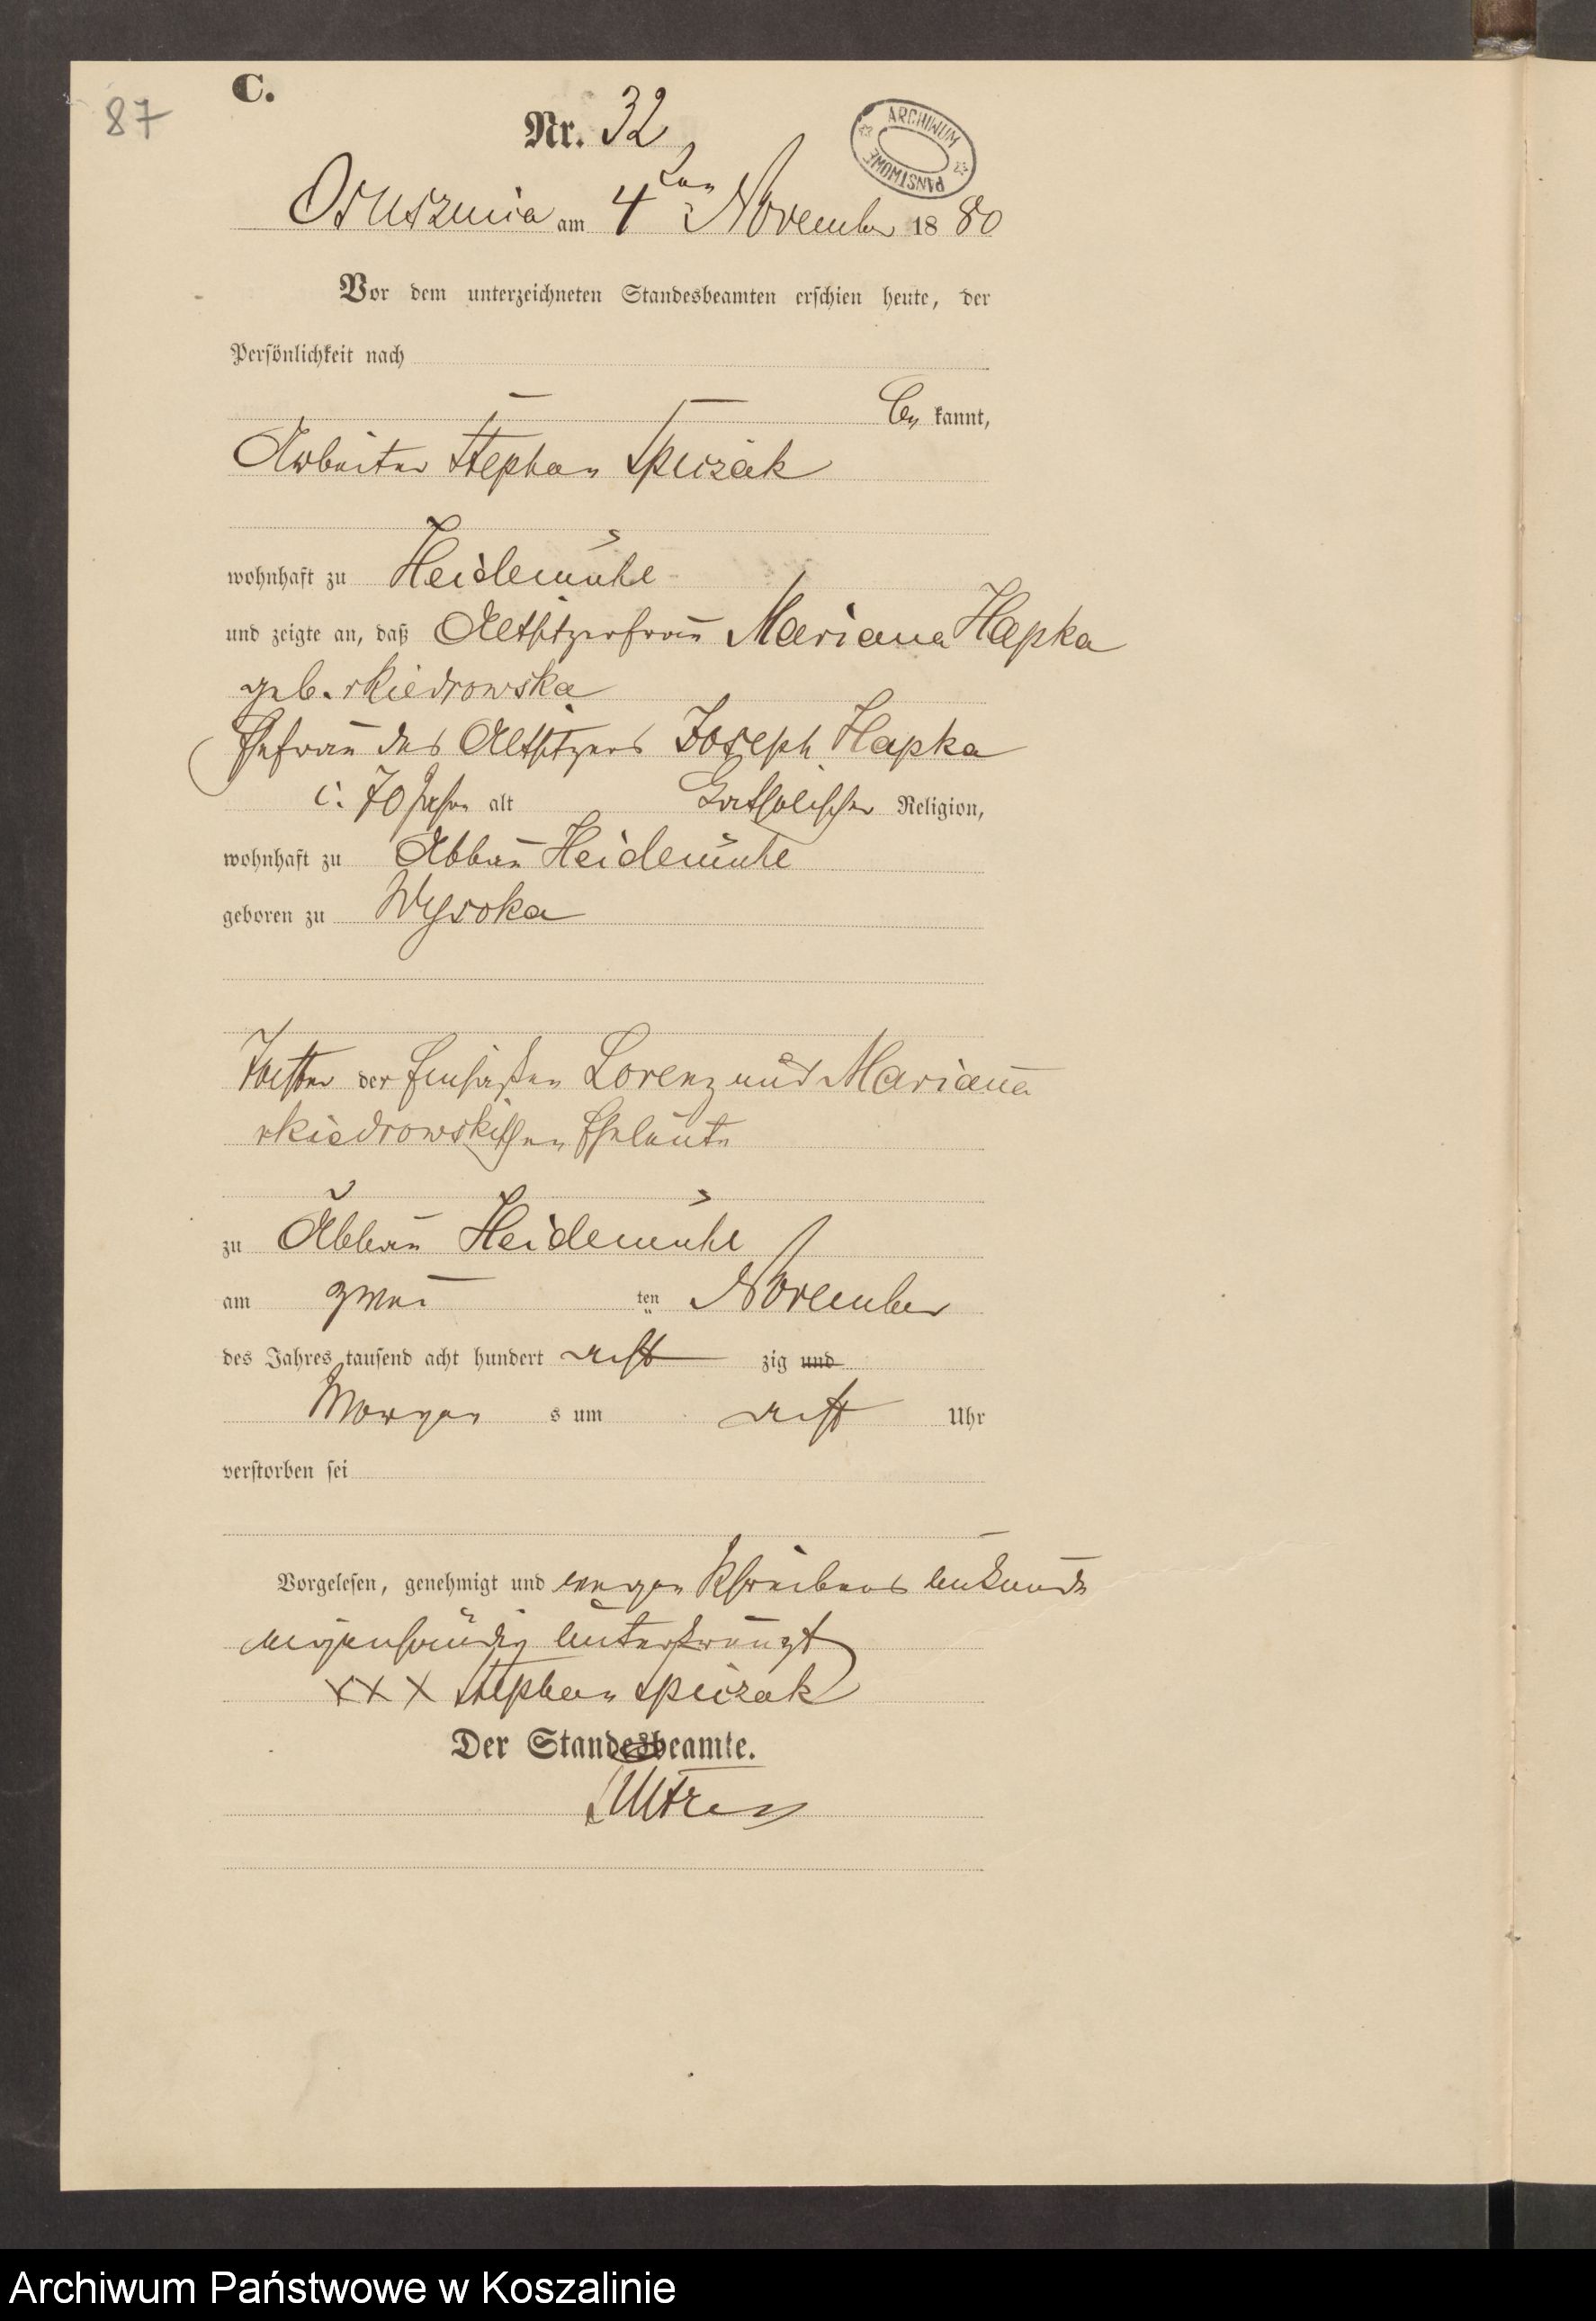 87
C.
Nr. 32
ARCHIWUM PAŃSTWOWE
Osusznica am 4ten November 1880
Vor dem unterzeichneten Standesbeamten erschien heute, der
Persönlichkeit nach
be kannt,
Arbeiter Stephan Spiczak
wohnhaft zu Heidemühl
und zeigte an, daß Altsitzerfrau Mariana Hapka
geb. Kiedrowska
Ehefrau des Altsitzers Joseph Hapka
c. 70 Jahre alt Katholischer Religion,
wohnhaft zu Abbau Heidemühl
geboren zu Wysoka
Tochter der Einsaßen Lorenz und Mariana
Kiedrowskischen Eheleute
zu Abbau Heidemühl
am zwei ten November
des Jahres tausend acht hundert acht zig und
Morgen s um acht Uhr
verstorben sei
Vorgelesen, genehmigt und wegen Schreibens unkunde
eigenhändig unterkreuzt
XXX Stephan Spiczak
Der Standesbeamte.
Archiwum Państwowe w Koszalinie